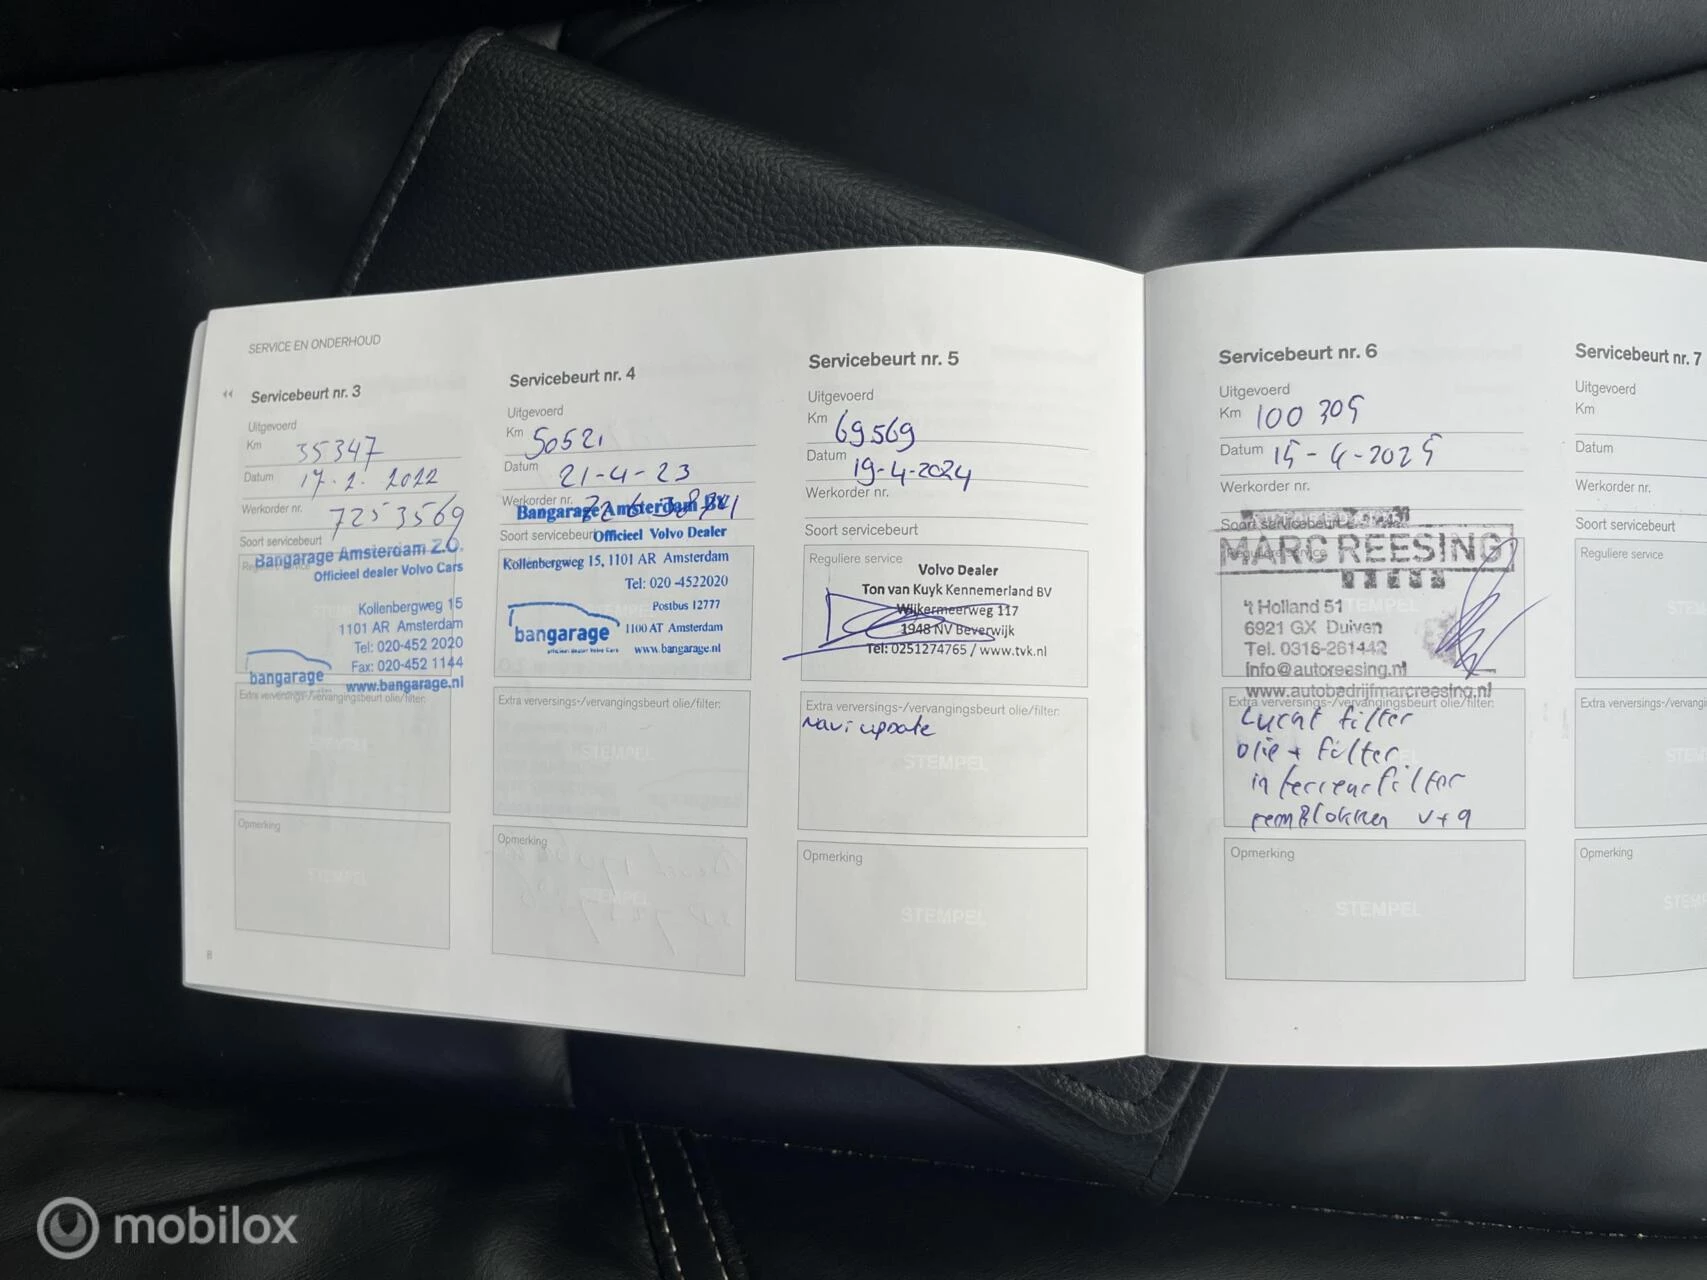 SERVICE EN ONDERHOUD
Servicebeurt nr. 3
Uitgevoerd
Km 35347
Datum 17-2-2022
Werkorder nr. 7253569
Soort servicebeurt
Bangarage Amsterdam Z.O.
Officieel dealer Volvo Cars
Kollenbergweg 15
1101 AR Amsterdam
Tel: 020-452 2020
Fax: 020-452 1144
bangarage
www.bangarage.nl
Extra verversings-/vervangingsbeurt olie/filter:
STEMPEL
Opmerking
STEMPEL
8
Servicebeurt nr. 4
Uitgevoerd
Km 50521
Datum 21-4-23
Werkorder nr.
Bangarage Amsterdam BV
Soort servicebeurt
Officieel Volvo Dealer
Kollenbergweg 15, 1101 AR Amsterdam
Tel: 020 -4522020
Postbus 12777
bangarage
1100 AT Amsterdam
officieel dealer Volvo Cars
www.bangarage.nl
Extra verversings-/vervangingsbeurt olie/filter:
STEMPEL
Opmerking
STEMPEL
Servicebeurt nr. 5
Uitgevoerd
Km 69569
Datum 19-4-2024
Werkorder nr.
Soort servicebeurt
Reguliere service
Volvo Dealer
Ton van Kuyk Kennemerland BV
Wijkermeerweg 117
1948 NV Beverwijk
Tel: 0251274765 / www.tvk.nl
Extra verversings-/vervangingsbeurt olie/filter:
Navi update
STEMPEL
Opmerking
STEMPEL
Servicebeurt nr. 6
Uitgevoerd
Km 100309
Datum 15-4-2025
Werkorder nr.
Soort servicebeurt
Reguliere service
MARC REESING
't Holland 51
6921 GX Duiven
Tel. 0316-261442
info@autoreesing.nl
www.autobedrijfmarcreesing.nl
Extra verversings-/vervangingsbeurt olie/filter:
Lucht filter
olie + filter
interieurfilter
remblokken v+a
Opmerking
STEMPEL
Servicebeurt nr. 7
Uitgevoerd
Km
Datum
Werkorder nr.
Soort servicebeurt
Reguliere service
STEM
Extra verversings-/vervangi
STEM
Opmerking
STEM
mobilox